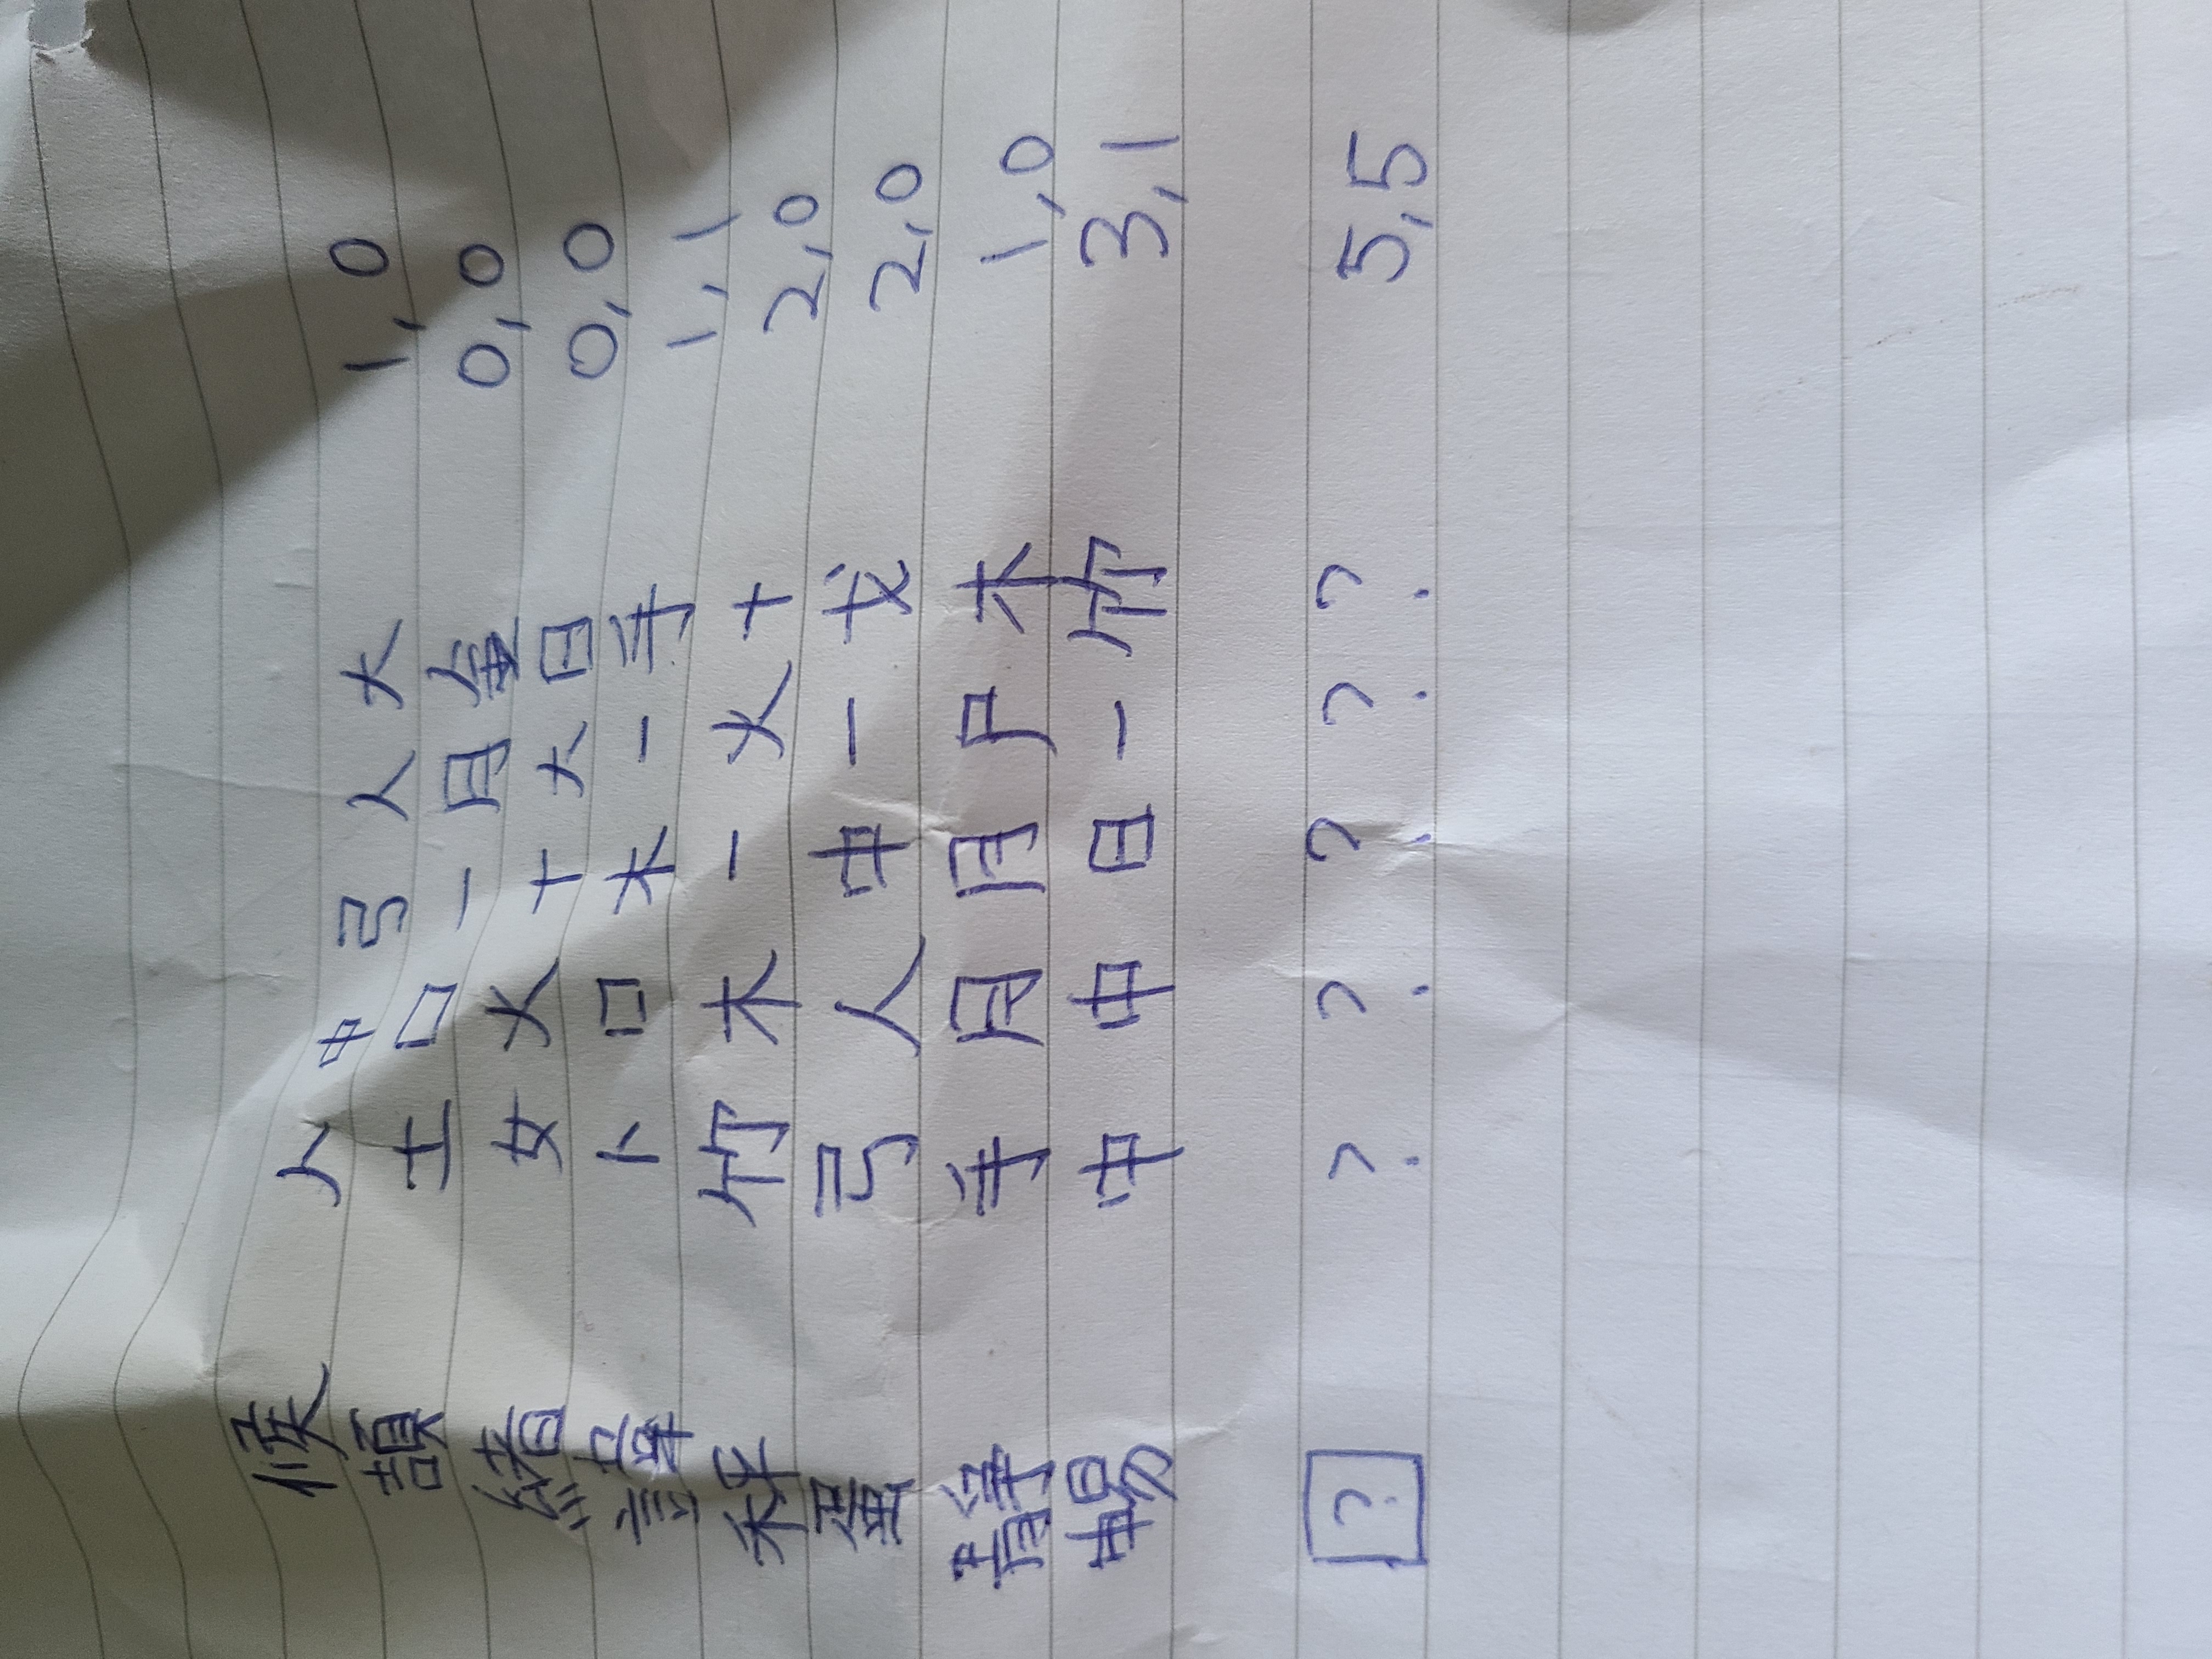 候 人 中 弓 人 大 1,0
頡 土 口 一 月 金 0,0
緒 女 火 十 大 日 0,0
諱 卜 口 木 一 手 1,1
秤 竹 木 一 火 十 2,0
蛋 弓 人 中 一 戈 2,0
靜 手 月 月 尸 木 1,0
暢 中 中 日 一 竹 3,1
? ? ? ? ? ? 5,5